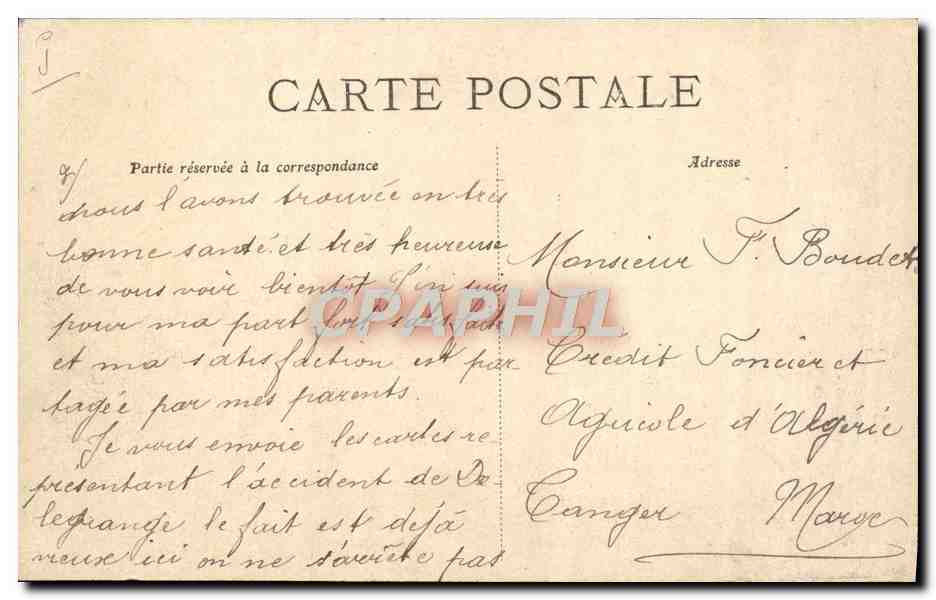 CARTE POSTALE
Partie réservée à la correspondance
Adresse
2/
nous l'avons trouvée en très
bonne santé et très heureuse
de vous voir bientôt J'en suis
pour ma part fort satisfaite
et ma satisfaction est par
tagée par mes parents.
Je vous envoie les cartes re-
présentant l'accident de De-
legrange le fait est déjà
vieux ici on ne s'arrête pas
Monsieur F. Boudet
Crédit Foncier et
Agricole d'Algérie
Tanger Maroc
CPAPHIL